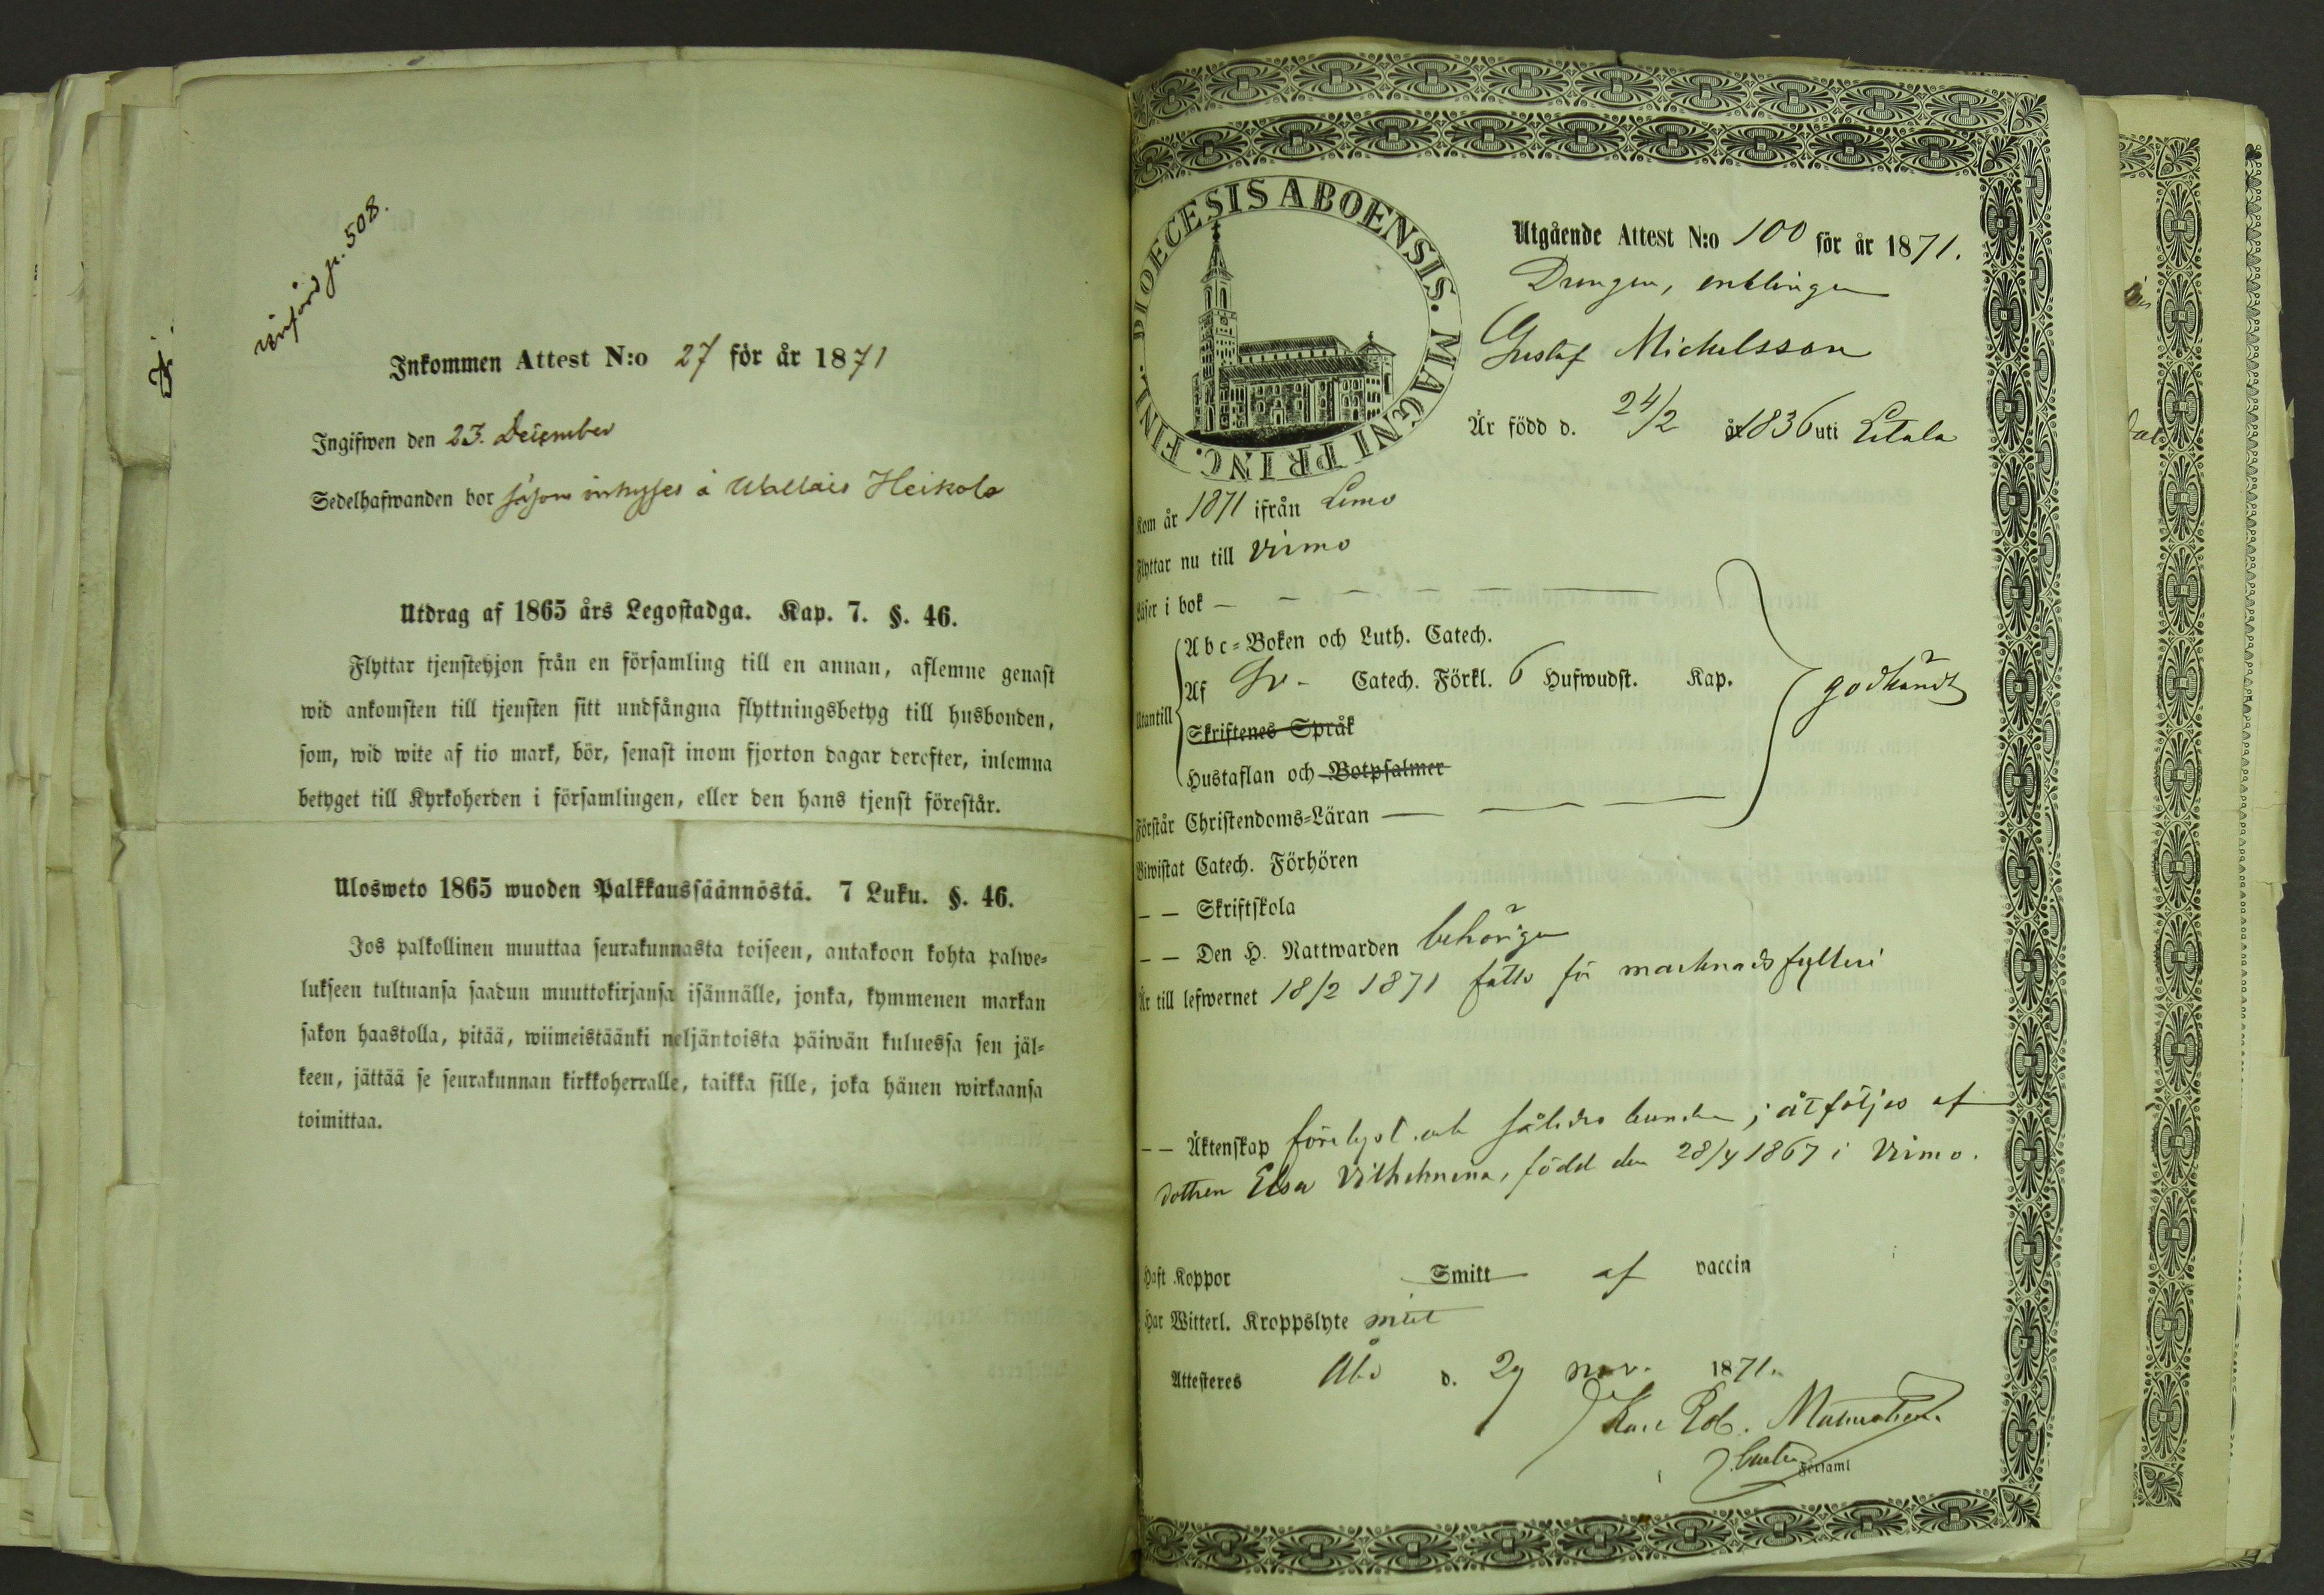 införd p. 508.
Inkommen Attest N:o 27 för år 1871
Ingifwen den 23. December
Sedelhafwanden bor såsom inhyses å Wallais Heikola
Utdrag af 1865 års Legostadga. Kap. 7. §. 46.
Flyttar tjenstehjon från en församling till en annan, aflemne genast
wid ankomsten till tjensten sitt undfångna flyttningsbetyg till husbonden,
som, wid wite af tio mark, bör, senast inom fjorton dagar derefter, inlemna
betyget till Kyrkoherden i församlingen, eller den hans tjenst förestår.
Ulosweto 1865 wuoden Palkkaussäännöstä. 7 Luku. §. 46.
Jos palkollinen muuttaa seurakunnasta toiseen, antakoon kohta palwe-
lukseen tultuansa saadun muuttokirjansa isännälle, jonka, kymmenen markan
sakon haastolla, pitää, wiimeistäänki neljäntoista päiwän kuluessa sen jäl-
keen, jättää se seurakunnan kirkkoherralle, taikka sille, joka hänen wirkaansa
toimittaa.
DIOECESIS ABOENSIS. MAGNI PRINC. FINL.
Utgående Attest N:o 100 för år 1871.
Drengen, enklingen
Gustaf Michelsson
Är född d. 24/2 år 1836 uti Letala
Kom år 1871 ifrån Lemo
Flyttar nu till Virmo
Läser i bok — — — —
Abc-Boken och Luth. Catech.
Utantill
Af Sv- Catech. Förkl. 6 Hufwudst. Kap.
godkändt
Skriftenes Språk
Hustaflan och Botpsalmer
Förstår Christendoms-Läran — — —
Biwistat Catech. Förhören
— — Skriftskola
— — Den H. Nattwarden behörigen
Är till lefwernet 18/2 1871 fälld för marknadsfylleri
— — Äktenskap förelyst och således bunden; åtföljes af
dottren Elsa Vilhelmina, född den 28/4 1867 i Virmo.
Haft Koppor Smitt af vaccin
Har Witterl. Kroppslyte intet
Attesteres Åbo d. 29 nov. 1871.
Karl Rob.
Församl